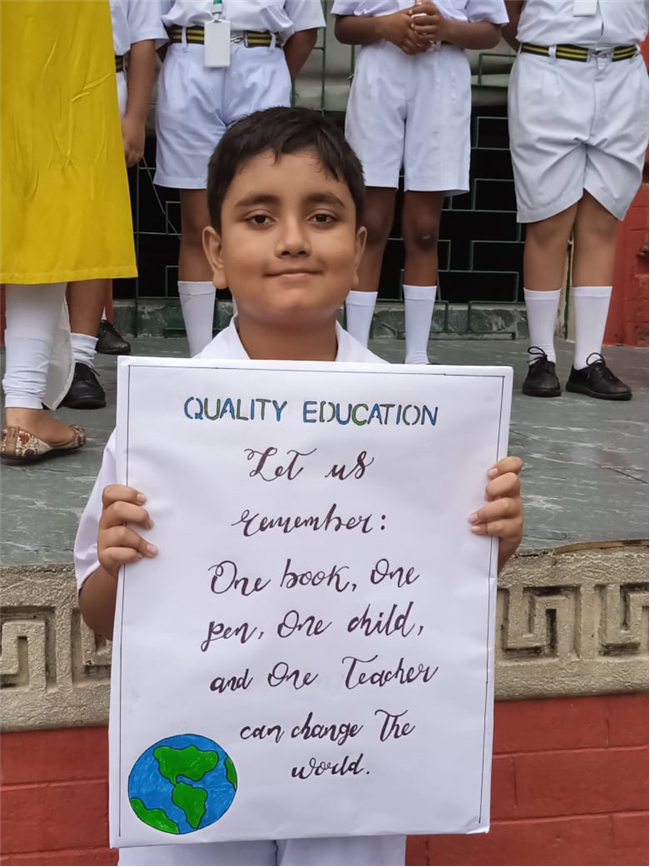 QUALITY EDUCATION
Let us
remember:
One book, One
pen, One child,
and One Teacher
can change The
world.